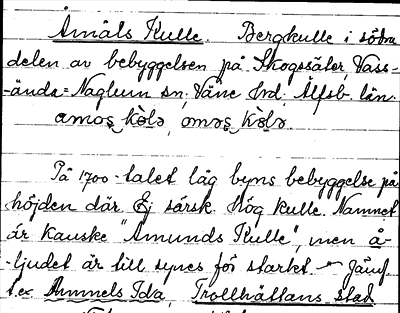 Åmåls Kulle. Bergkulle i södra
delen av bebyggelsen på Skogssäter, Vass-
-ända-Naglum sn, Väne hrd, Älfsb. län.
amos kòlə, oməs kòlə.
På 1700-talet låg byns bebyggelse på
höjden där. Ej särsk. hög kulle. Namnet
är kanske "Amunds Kulle", men å-
-ljudet är till synes för starkt – Jämf
t.ex Ammels Ida, Trollhättans stad